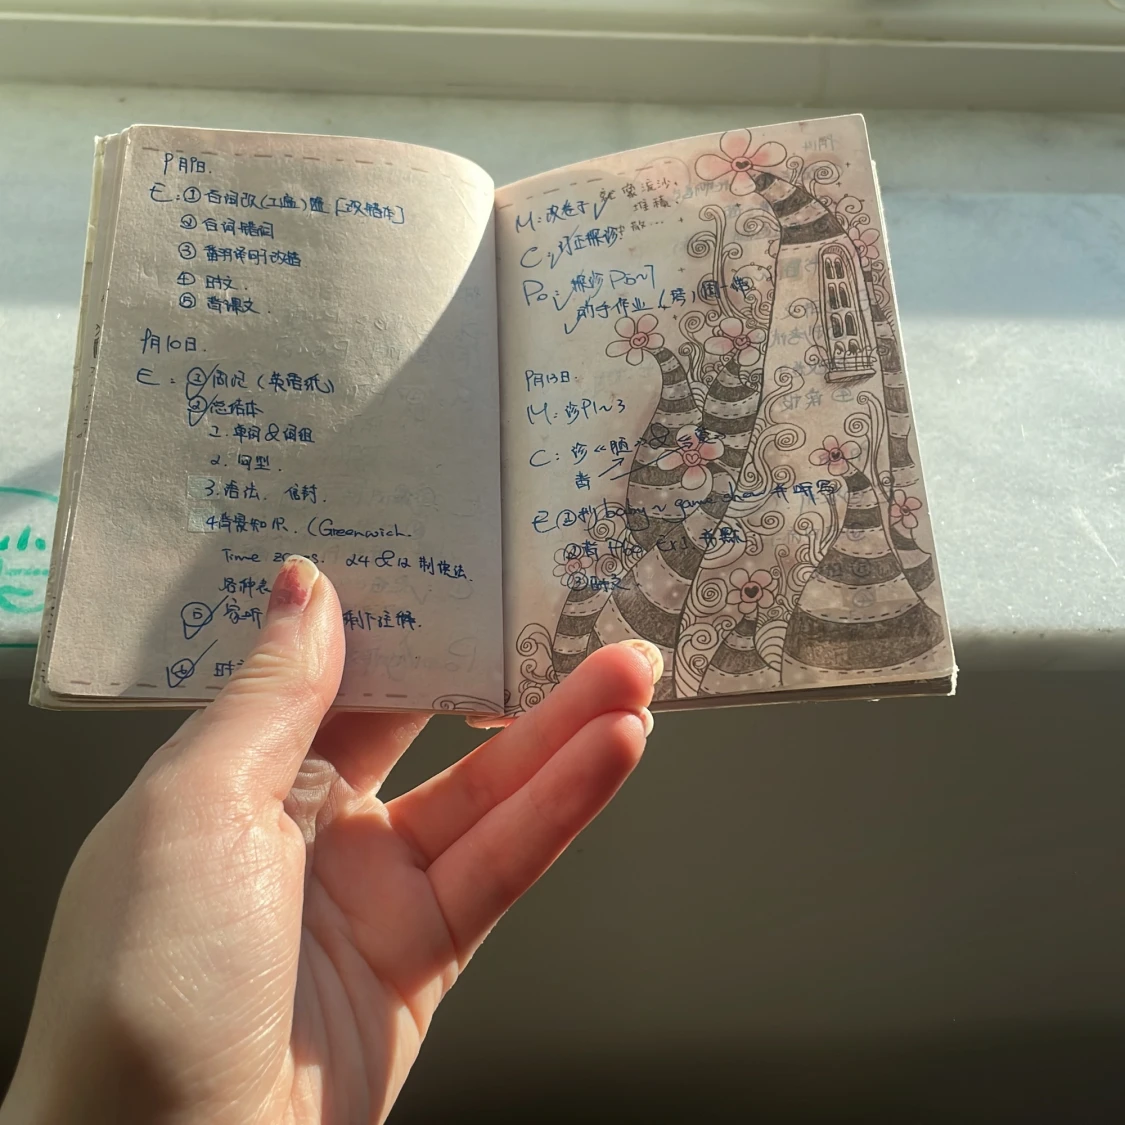 9月9日.
E:①百词改(工盛)题[改错本]
②百词错词
③翻译句子改错
④时文.
⑤背课文.
9月10日.
E:①周记(英语纸)
②总结本
1.单词&词组
2.句型.
3.语法.
4.背景知识.(Greenwich.
Time zones. 24&12制换法.
各种表
⑤ 家听 制作注释.
⑥ 时
M:改卷子
就像流沙,
堆積
散...
C:订正探诊
Po:探诊P5~7
助手作业(房)周一结
9月13日.
M:诊P1~3
C:诊
背
E①抄baby~game show并听写
②背 并默
③时文